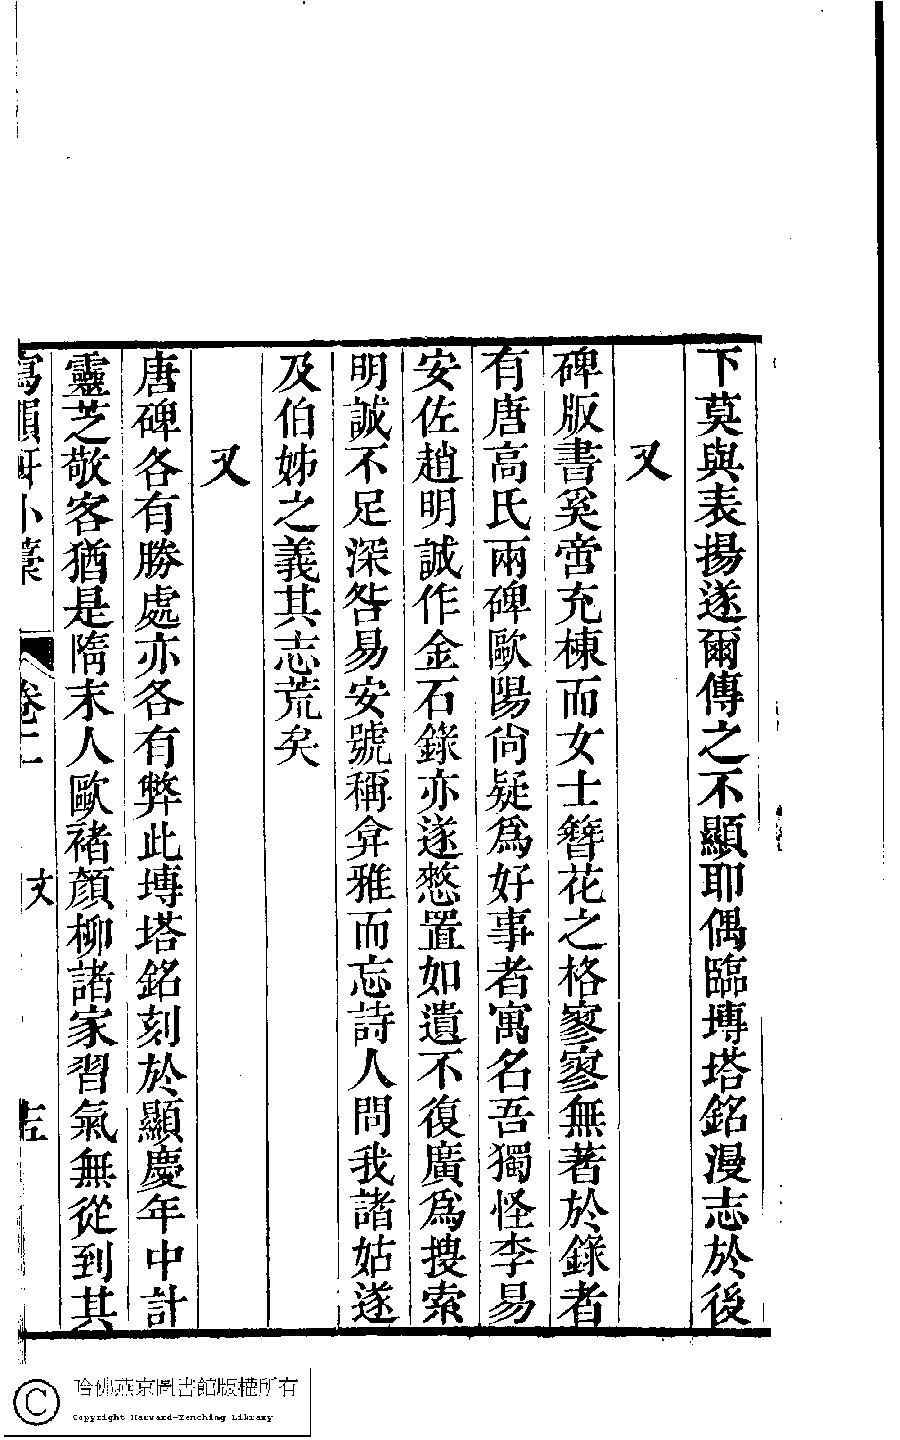 下莫與表揚遂爾傳之不顯耶偶臨塼塔銘漫志於後
又
碑版書奚啻充棟而女士簪花之格寥寥無著於錄者
有唐高氏兩碑歐陽尙疑爲好事者寓名吾獨怪李易
安佐趙明誠作金石錄亦遂憖置如遺不復廣爲搜索
明誠不足深咎易安號稱弇雅而忘詩人問我諸姑遂
及伯姊之義其志荒矣
又
唐碑各有勝處亦各有弊此塼塔銘刻於顯慶年中計
靈芝敬客猶是隋末人歐褚顏柳諸家習氣無從到其
寫韻軒小藁
卷二
文
哈佛燕京圖書館版權所有
Copyright Harvard-Yenching Library